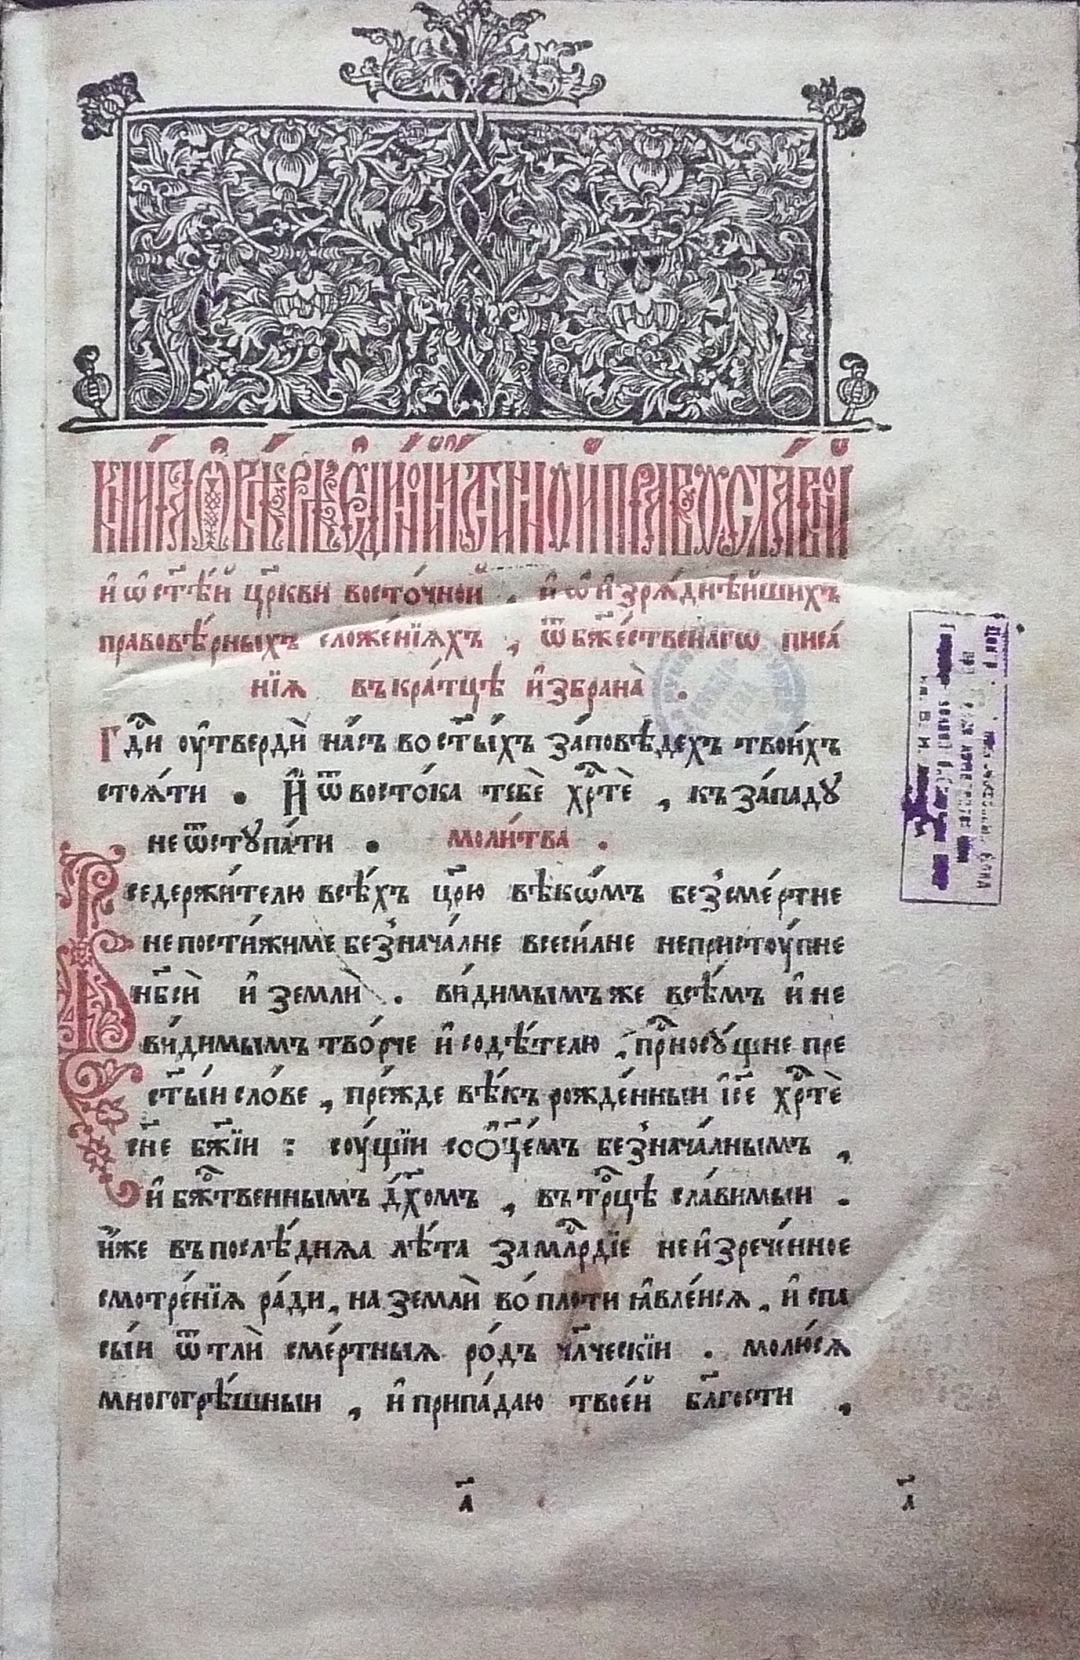 КНИ́ГА Ѡ҆ ВѢ́РѢ Е҆ДИ́НОЙ И҆́СТИННОЙ ПРАВОСЛА́ВНОЙ
и҆ ѡ҆ ст҃ѣ́й цр҃кви восто́чной . и҆ ѡ҆ и҆зрѧ́днѣйшихъ
правовѣ́рныхъ сложе́нїѧхъ , ѿ бж҃е́ственагѡ писа́
нїѧ въкра́тцѣ и҆збрана̀ .
Гдⷭ҇и ᲂу҆твердѝ на́съ во ст҃ы́хъ за́повѣдехъ твои́хъ
стоѧ́ти . И҆ ѿ восто́ка тебѐ хрⷭ҇тѐ , къ за́падꙋ
не ѿстꙋпа́ти . моли́тва .
Вседержи́телю всѣ́хъ цр҃ю̀ вѣкѡ́мъ безсме́ртне
непости́жиме безнача́лне всеси́лне непристꙋ́пне
нб҃сѝ и҆ землѝ . ви́димымъ же всѣ́мъ и҆ не
ви́димымъ тво́рче и҆ содѣ́телю , прⷭ҇носꙋ́щне пре
ст҃ы́и сло́ве , пре́жде вѣ́къ рожде́нныи і҆с҃е хрⷭ҇тѐ
сн҃е бж҃їи : сꙋ́щїи со ѻ҆ц҃е́мъ безнача́лнымъ ,
и҆ бжⷭ҇твеннымъ дх҃омъ , въ трⷪ҇цѣ сла́вимыи .
и҆́же въ послѣ́днѧѧ лѣ́та за млⷭ҇рдїе неи҆зрече́нное
смотре́нїѧ ра́ди , на землѝ во́ плоти ꙗ҆вле́йсѧ , и҆ спа
сы́и ѿ тлѝ сме́ртныѧ ро́дъ чл҃ческїи . молю́сѧ
многогрѣ́шныи , и҆ припа́даю твое́й бл҃гости ,
а҃ а҃